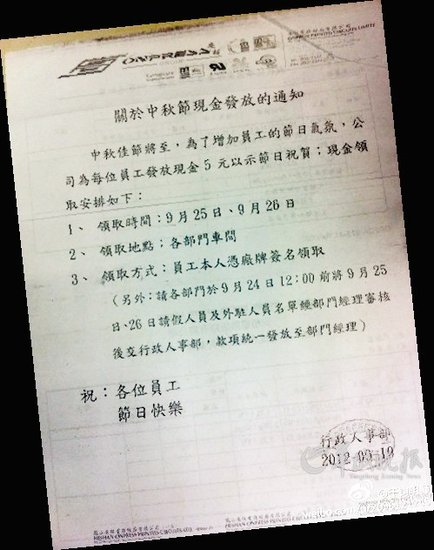 ONPRESS
關於中秋節現金發放的通知
中秋佳節將至，為了增加員工的節日氣氛，公
司為每位員工發放現金5元以示節日祝賀；現金領
取安排如下：
1、 領取時間：9月25日、9月26日
2、 領取地點：各部門車間
3、 領取方式：員工本人憑廠牌簽名領取
（另外：請各部門於9月24日12:00前將9月25
日、26日請假人員及外駐人員名單經部門經理審核
後交行政人事部，款項統一發放至部門經理）
祝：各位員工
節日快樂
行政人事部
2012-09-19